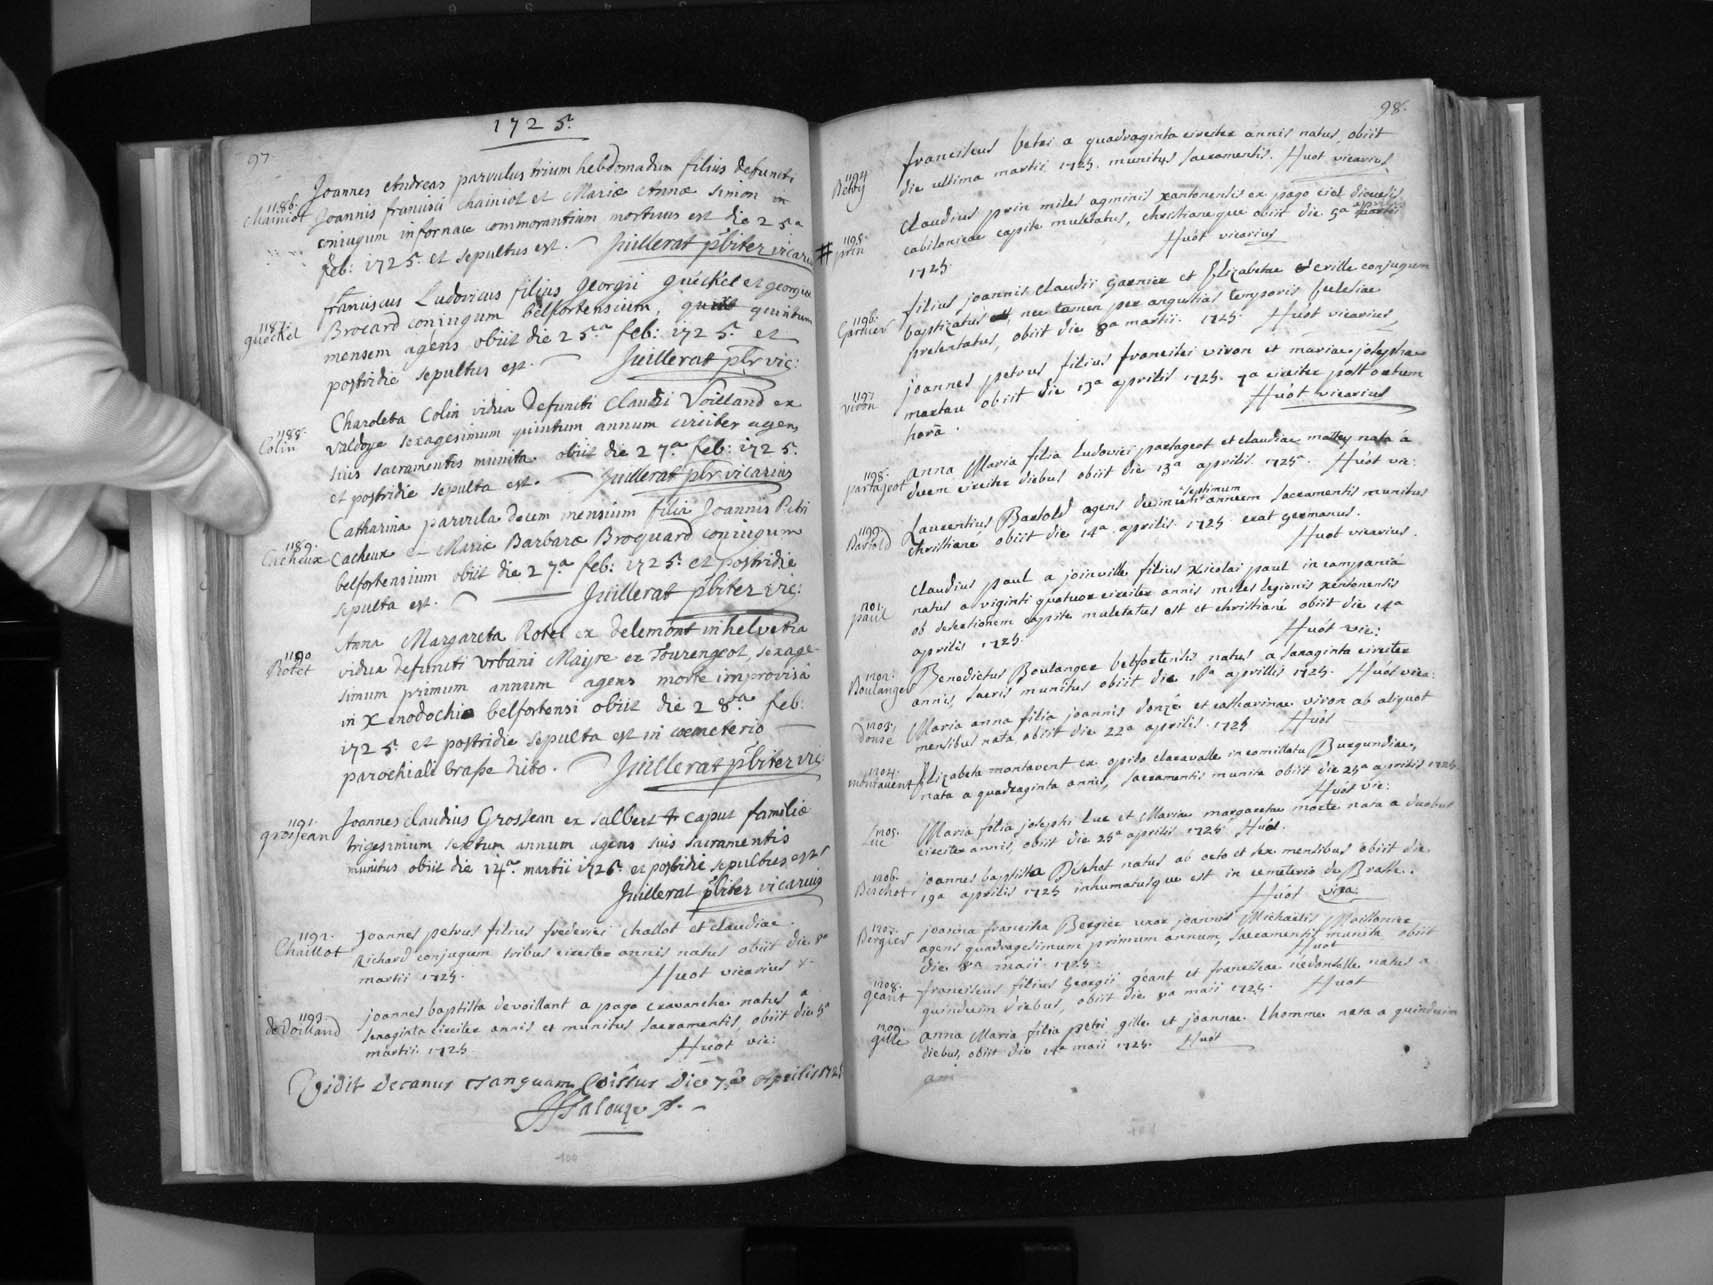 1725.
97.
1186.
Chainiot
Joannes Andreas parvulus trium hebdomadum filius defuncti
Joannis francisci Chainiot et Mariæ Annæ Simon in
coniugum infornace commorantium mortuus est die 25a
feb: 1725. et sepultus est. Juillerat pbiter vicarius
1187.
quéckel
franciscus Ludovicus filius Georgii Quéckel et georgiæ
Brocard coniugum belfortensium, quint quintum
mensem agens obiit die 25a feb: 1725. et
postridie sepultus est. Juillerat pbr vic:
1188.
Colin
Charoleta Colin vidua defuncti Claudii Voilland ex
Valdoye sexagesimum quintum annum circiter agens
suis sacramentis munita obiit die 27a feb: 1725.
et postridie sepulta est. Juillerat pbr vicarius
1189.
Cacheux
Catharina parvula decem mensium filia Joannis Petri
Cacheux et Mariæ Barbaræ Broquard coniugum
belfortensium obiit die 27a feb: 1725. et postridie
sepulta est. Juillerat pbiter vic:
1190
Rotet
Anna Margareta Rotet ex Delemont in helvetia
vidua defuncti Urbani Mayre ex Tourengeot, sexage-
simum primum annum agens morte improvisâ
in Xenodochio belfortensi obiit die 28a feb:
1725. et postridie sepulta est in cœmeterio
parochiali brasse dicto. Juillerat pbiter vic:
1191.
grosjean
Joannes Claudius Grosjean ex Salbert & caput familiæ
trigesimum sextum annum agens suis sacramentis
munitus obiit die 14a martii 1725. et postridie sepultus est
Juillerat pbiter vicarius
1192.
Chaillot
Joannes petrus filius frederici challot et claudiae
Richard conjugum tribus circiter annis natus obiit die 8a
martii 1725. Huot vicarius
1193.
de Voilland
joannes baptista devoillant a pago cravanche natus a
sexaginta circiter annis et munitus sacramentis, obiit die 5a
martii 1725. Huot vic:
Vidit decanus tanquam Coissus Die 7a Aprilis 1725
100
98.
1194
Betry
franciscus betri a quadraginta circiter annis natus, obiit
die ultima martii 1725. munitus sacramentis. Huot vicarius
# 1195.
prin
claudius prin miles agminis xantonensis ex pago ciel diœcesis
cabilonicae capite muletatus, christianeque obiit die 5a martii aprilis
1725. Huót vicarius
1196.
Garnier
filius joannis claudii Garnier et Elizabetae deville conjugum
baptizatus est nec tamen per angustias temporis Eclesiae
presentatus, obiit die 8a martii. 1725. Huot vicarius
1197
viron
joannes petrus filius francisci viron et mariae josephae
martau obiit die 13a aprilis 1725. 7a circiter post ortum
horâ. Huót vicarius
1198.
partageot
Anna Maria filia Ludovici partageot et claudiae mattey nata á
duem circiter diebus obiit die 13a aprilis. 1725. Huót vic:
1199
Bartold
Laurentius Bartold agens decimum septimum annum sacramentis munitus
christiané obiit die 14a aprilis 1725. erat germanus.
Huot vicarius.
1201.
paul
claudius paul a joinville filius Nicolai paul in campaniâ
natus a viginti quatuor circiter annis miles legionis xentonensis
ob desertionem capite muletatus est et christiané obiit die 14a
aprilis 1725. Huót vic:
1202.
Boulanger
Benedictus Boulanger belfortensis natus a sexaginta circiter
annis, sacris munitus obiit die 18a aprillis 1725. Huót vica:
1203.
donzé
Maria anna filia joannis donzé et catharinae viron ab aliquot
mensibus nata, obiit die 22a aprilis. 1725 Huót
1204.
montavent
Elizabeta montavent ex opido claravalle in comittatu Burgundiae,
nata a quadraginta annis, sacramentis munita obiit die 25a aprilis 1725.
Huót vic:
1205.
Luc
Maria filia josephi Luc et Mariae margaretae morte nata a duobus
circiter annis, obiit die 25a aprilis. 1725 Huót.
1206.
Beschot
joannes baptista Béschot natus ab octo et sex mensibus obiit die
19a aprilis 1725 inhumatusque est in cemeterio de Brasse.
Huót vica:
1207.
Bergier
joanna francisca Bergier uxor joannis Michaelis Moillonier
agens quadragesimum primum annum, sacramentis munita obiit
die 8a maii. 1725. Huot
1208.
géant
franciscus filius Georgii géant et franciscae nédonselle natus a
quindecim diebus, obiit die 8a maii 1725. Huot
1209.
gille
anna Maria filia petri gille et joannae Lhomme nata a quindecim
diebus, obiit die 14a maii 1725. Huót